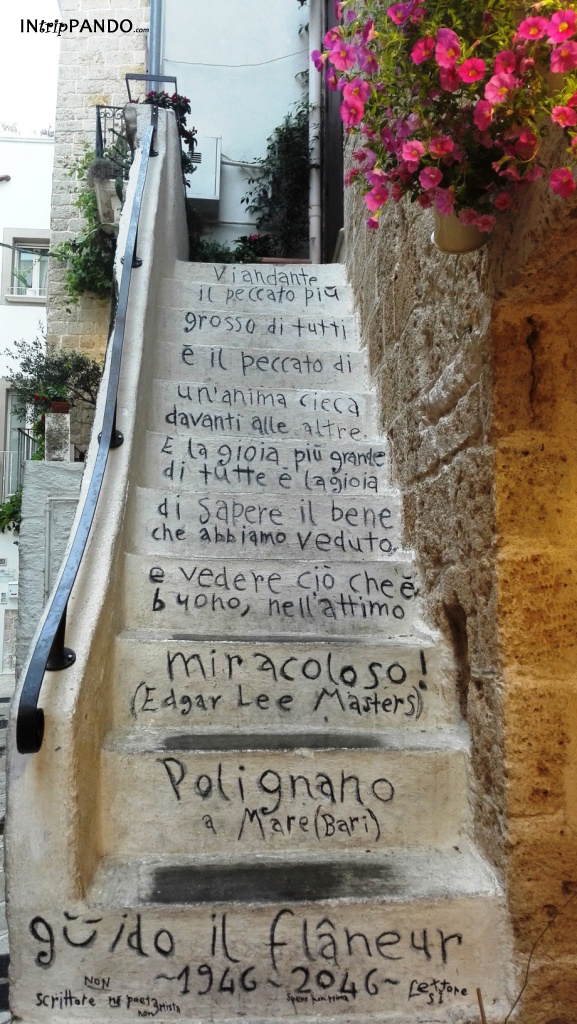 INtripPANDO.com
Viandante
il peccato più
grosso di tutti
è il peccato di
un'anima cieca
davanti alle altre.
E la gioia più grande
di tutte è la gioia
di sapere il bene
che abbiamo veduto,
e vedere ciò che è
buono, nell'attimo
miracoloso!
(Edgar Lee Masters)
Polignano
a Mare (Bari)
guido il flâneur
~1946~2046~
NON
scrittore
poeta
non
Lettore
SI